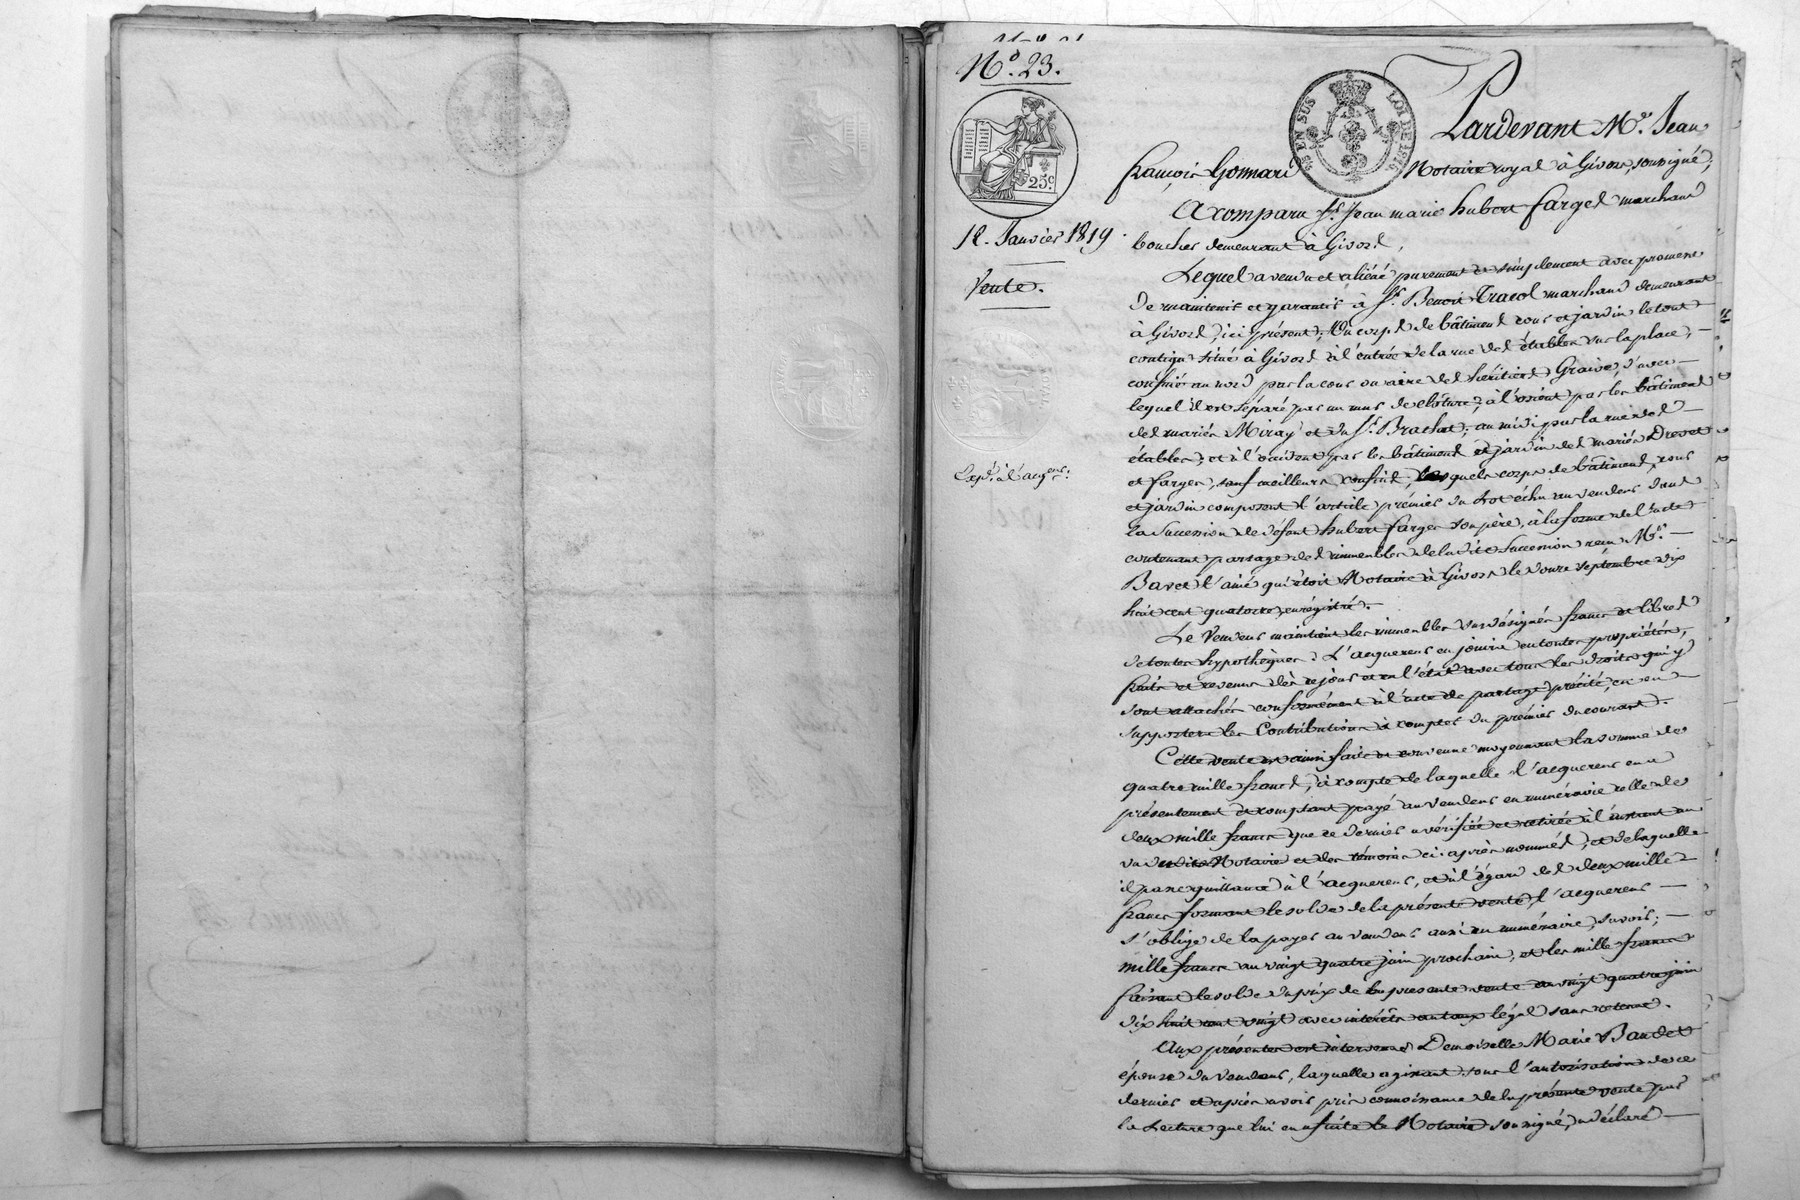 N.° 23.
25 EN SUS LOI DE 1816
25c.
Pardevant M.e Jean
françois Gonnard Notaire royal à Givors, soussigné,
A comparu Sr. Jean marie hubert farge marchand
18. Janvier 1819.
boucher demeurant à Givors,
Vente.
Lequel a vendu et aliéné purement et simplement avec promesse
de maintenir et garantir à Sr. Benoit Tracol marchand demeurant
à Givors, ici présent; Un corps de bâtiment cour et jardin le tout
contigu situé à Givors à l'entrée de la rue des étables sur la place,
confiné au nord par la cour ou aire des héritiers Graive, d'avec
lequel il est séparé par un mur de clôture; à l'orient par les bâtiment
des mariés Miray et du Sr. Brachet; au midi par la rue des
étables; et à l'occident par les bâtiment et jardin des mariés Drevet
Expé. à l'acqr.
et farge, sauf meilleurs confins, lesquels corps de bâtiment, cour
et jardin composent l'article prémier du lot échu au vendeur dans
la Succession de défunt hubert farge son père, à la forme de l'acte
contenant partage des immeubles de ladite Succession reçu M.e
Baret l'ainé qui étoit Notaire à Givors le douze septembre dix
huit cent quatorze, enrégistré.
Le Vendeur maintient les immeubles susdésignés francs et libres
de toutes hypothèques: L'acquereur en jouira en toutes propriétés,
fruits et revenus dès ce jour et en l'état avec tous les droits qui y
sont attachés conformément à l'acte de partage précité, et en
supportera les Contributions à compter du prémier du courant.
Cette vente est ainsi faite et convenue moyennant la somme de
quatre mille francs, à compte de laquelle l'acquereur en a
présentement et comptant payé au vendeur en numéraire celle de
deux mille francs que ce dernier a vérifiée et retirée à l'instant au
vu dudit Notaire et des témoins ci-après nommés, et de laquelle
il passe quittance à l'acquereur, et à l'égard des deux mille
francs formant le solde de la présente vente, l'acquereur
s'oblige de la payer au vendeur aussi en numéraire, savoir;
mille francs au vingt quatre juin prochain, et les mille francs
faisant le solde du prix de la presente vente au vingt quatre juin
dix huit cent vingt avec intérêts au taux légal sans retenue.
Aux présentes est intervenue Demoiselle Marie Baudet
épouse du vendeur, laquelle agissant sous l'autorisation de ce
dernier et après avoir pris connoissance de la présente vente par
la Lecture que lui en a faite le Notaire soussigné, a déclaré